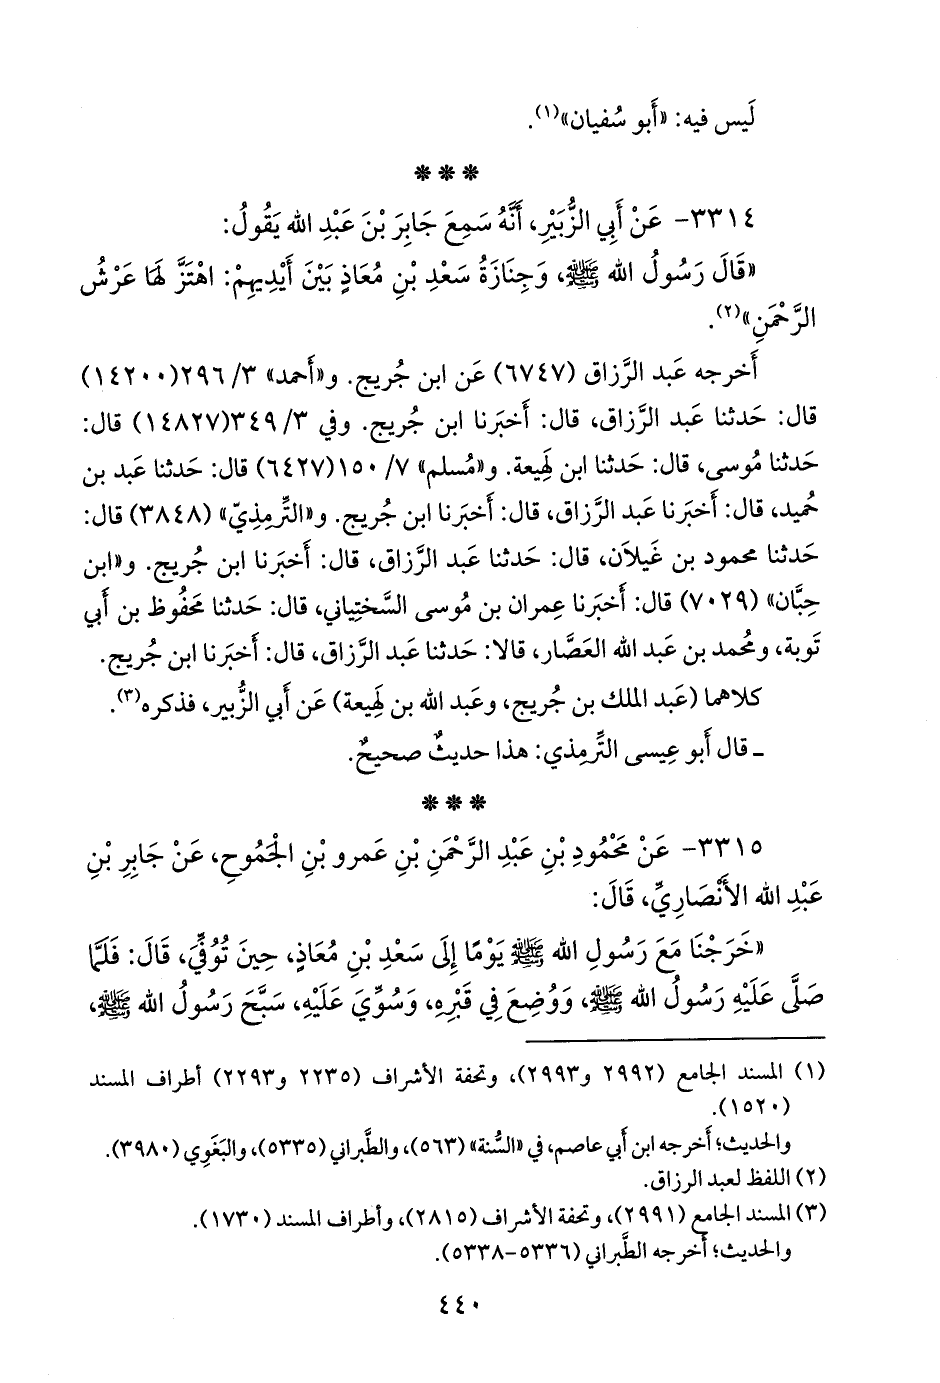 لَيس فيه: «أَبو سُفيان»(١).
***
٣٣١٤- عَنْ أَبِي الزُّبَيْرِ، أَنَّهُ سَمِعَ جَابِرَ بْنَ عَبْدِ الله يَقُولُ:
«قَالَ رَسُولُ الله ﷺ، وَجِنَازَةُ سَعْدِ بْنِ مُعَاذٍ بَيْنَ أَيْدِيهِمْ: اهْتَزَّ لَهَا عَرْشُ
الرَّحْمَنِ»(٢).
أَخرجه عَبد الرَّزاق (٦٧٤٧) عَن ابن جُريج. و«أَحمد» ٣/ ٢٩٦(١٤٢٠٠)
قال: حَدثنا عَبد الرَّزاق، قال: أَخبَرنا ابن جُريج. وفي ٣/ ٣٤٩(١٤٨٢٧) قال:
حَدثنا مُوسى، قال: حَدثنا ابن لَهِيعة. و«مُسلم» ٧/ ١٥٠(٦٤٢٧) قال: حَدثنا عَبد بن
حُميد، قال: أَخبَرنا عَبد الرَّزاق، قال: أَخبَرنا ابن جُريج. و«التِّرمِذيّ» (٣٨٤٨) قال:
حَدثنا محمود بن غَيلَان، قال: حَدثنا عَبد الرَّزاق، قال: أَخبَرنا ابن جُريج. و«ابن
حِبَّان» (٧٠٢٩) قال: أَخبَرنا عِمران بن مُوسى السَّختِياني، قال: حَدثنا مَحفُوظ بن أَبي
تَوبة، ومُحمد بن عَبد الله العَصَّار، قالا: حَدثنا عَبد الرَّزاق، قال: أَخبَرنا ابن جُريج.
كلاهما (عَبد الملك بن جُريج، وعَبد الله بن لَهِيعة) عَن أَبي الزُّبير، فذكره(٣).
ـ قال أَبو عِيسى التِّرمِذي: هذا حديثٌ صحيحٌ.
***
٣٣١٥- عَنْ مَحْمُودِ بْنِ عَبْدِ الرَّحْمَنِ بْنِ عَمرو بْنِ الْجَمُوحِ، عَنْ جَابِرِ بْنِ
عَبْدِ الله الأَنْصَارِيِّ، قَالَ:
«خَرَجْنَا مَعَ رَسُولِ الله ﷺ يَوْمًا إِلَى سَعْدِ بْنِ مُعَاذٍ، حِينَ تُوُفِّيَ، قَالَ: فَلَمَّا
صَلَّى عَلَيْهِ رَسُولُ الله ﷺ، وَوُضِعَ فِي قَبْرِهِ، وَسُوِّيَ عَلَيْهِ، سَبَّحَ رَسُولُ الله ﷺ،
(١) المسند الجامع (٢٩٩٢ و٢٩٩٣)، وتحفة الأشراف (٢٢٣٥ و٢٢٩٣) أطراف المسند
(١٥٢٠).
والحديث؛ أَخرجه ابن أَبي عاصم، في «السُّنة» (٥٦٣)، والطَّبراني (٥٣٣٥)، والبَغَوِي (٣٩٨٠).
(٢) اللفظ لعبد الرزاق.
(٣) المسند الجامع (٢٩٩١)، وتحفة الأشراف (٢٨١٥)، وأطراف المسند (١٧٣٠).
والحديث؛ أَخرجه الطَّبراني (٥٣٣٦-٥٣٣٨).
٤٤٠